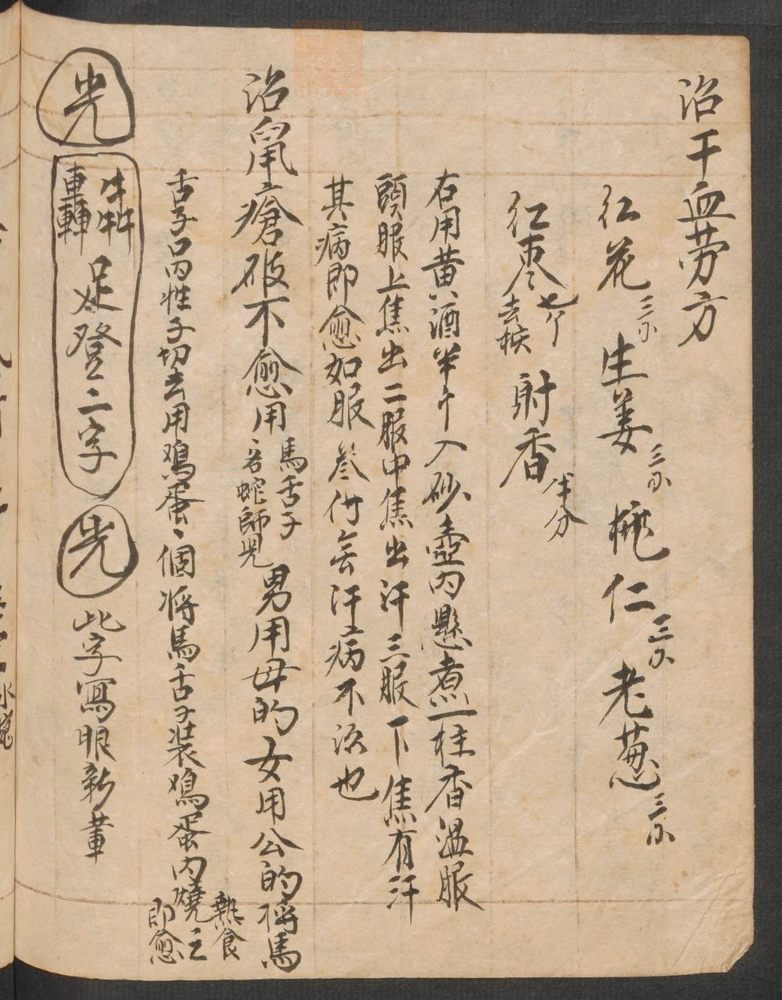 治干血劳方
红花三分 生姜三分 桃仁三分 老葱三分
红枣七个去核 射香半分
右用黄酒半斤入砂壶內懸煮一柱香温服
頭服上焦出二服中焦出汗三服下焦有汗
其病即愈如服叁付無汗病不治也
治鼠瘡破不愈用馬舌子 名蛇師 男用母的女用公的将馬
舌子口內性子切去用鳮蛋 個将馬舌子装鳮蛋內燒 熱食即愈
光 犇 轟 足登二字 光 此字寫眼